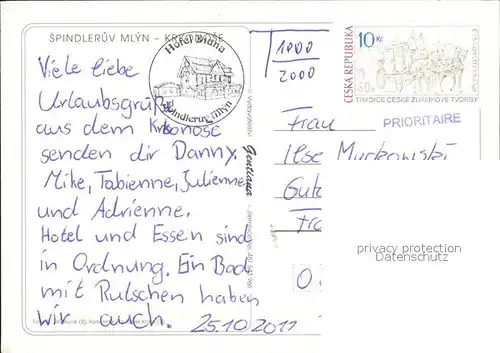 ŠPINDLERŮV MLÝN - KRKONOŠE
Viele liebe
Urlaubsgrüße
aus dem Krkonose
senden dir Danny,
Mike, Fabienne, Julienne
und Adrienne.
Hotel und Essen sind
in Ordnung. Ein Bad
mit Rutschen haben
wir auch. 25.10.2011
Hotel Diana
Špindlerův Mlýn
Gentiana
1000
2000
ČESKÁ REPUBLIKA
10 Kč
TRADICE ČESKÉ ZNÁMKOVÉ TVORBY
PRIORITAIRE
Frau
Ilse Murkowski
privacy protection
Datenschutz